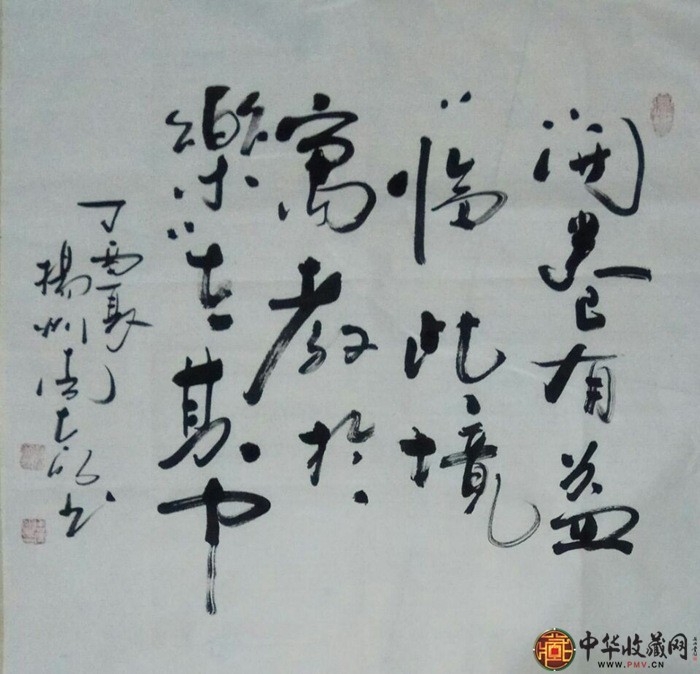 開卷有益
临此境
寓教於
樂在其中
丁酉夏
揚州周 书
中华收藏网
WWW.PMV.CN